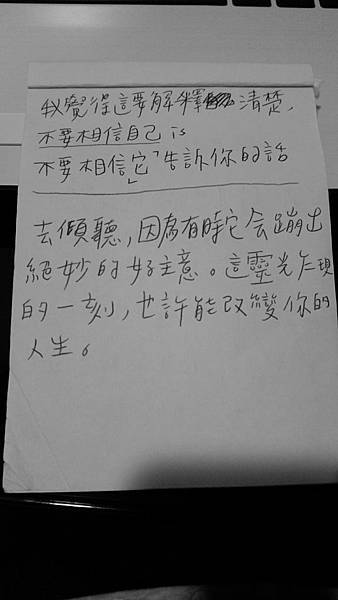 我覺得這要解釋清楚,
不要相信自己 is
不要相信它「告訴你的話
」
去傾聽,因為有時它会蹦出
絕妙的好主意。這靈光乍現
的一刻,也許能改變你的
人生。